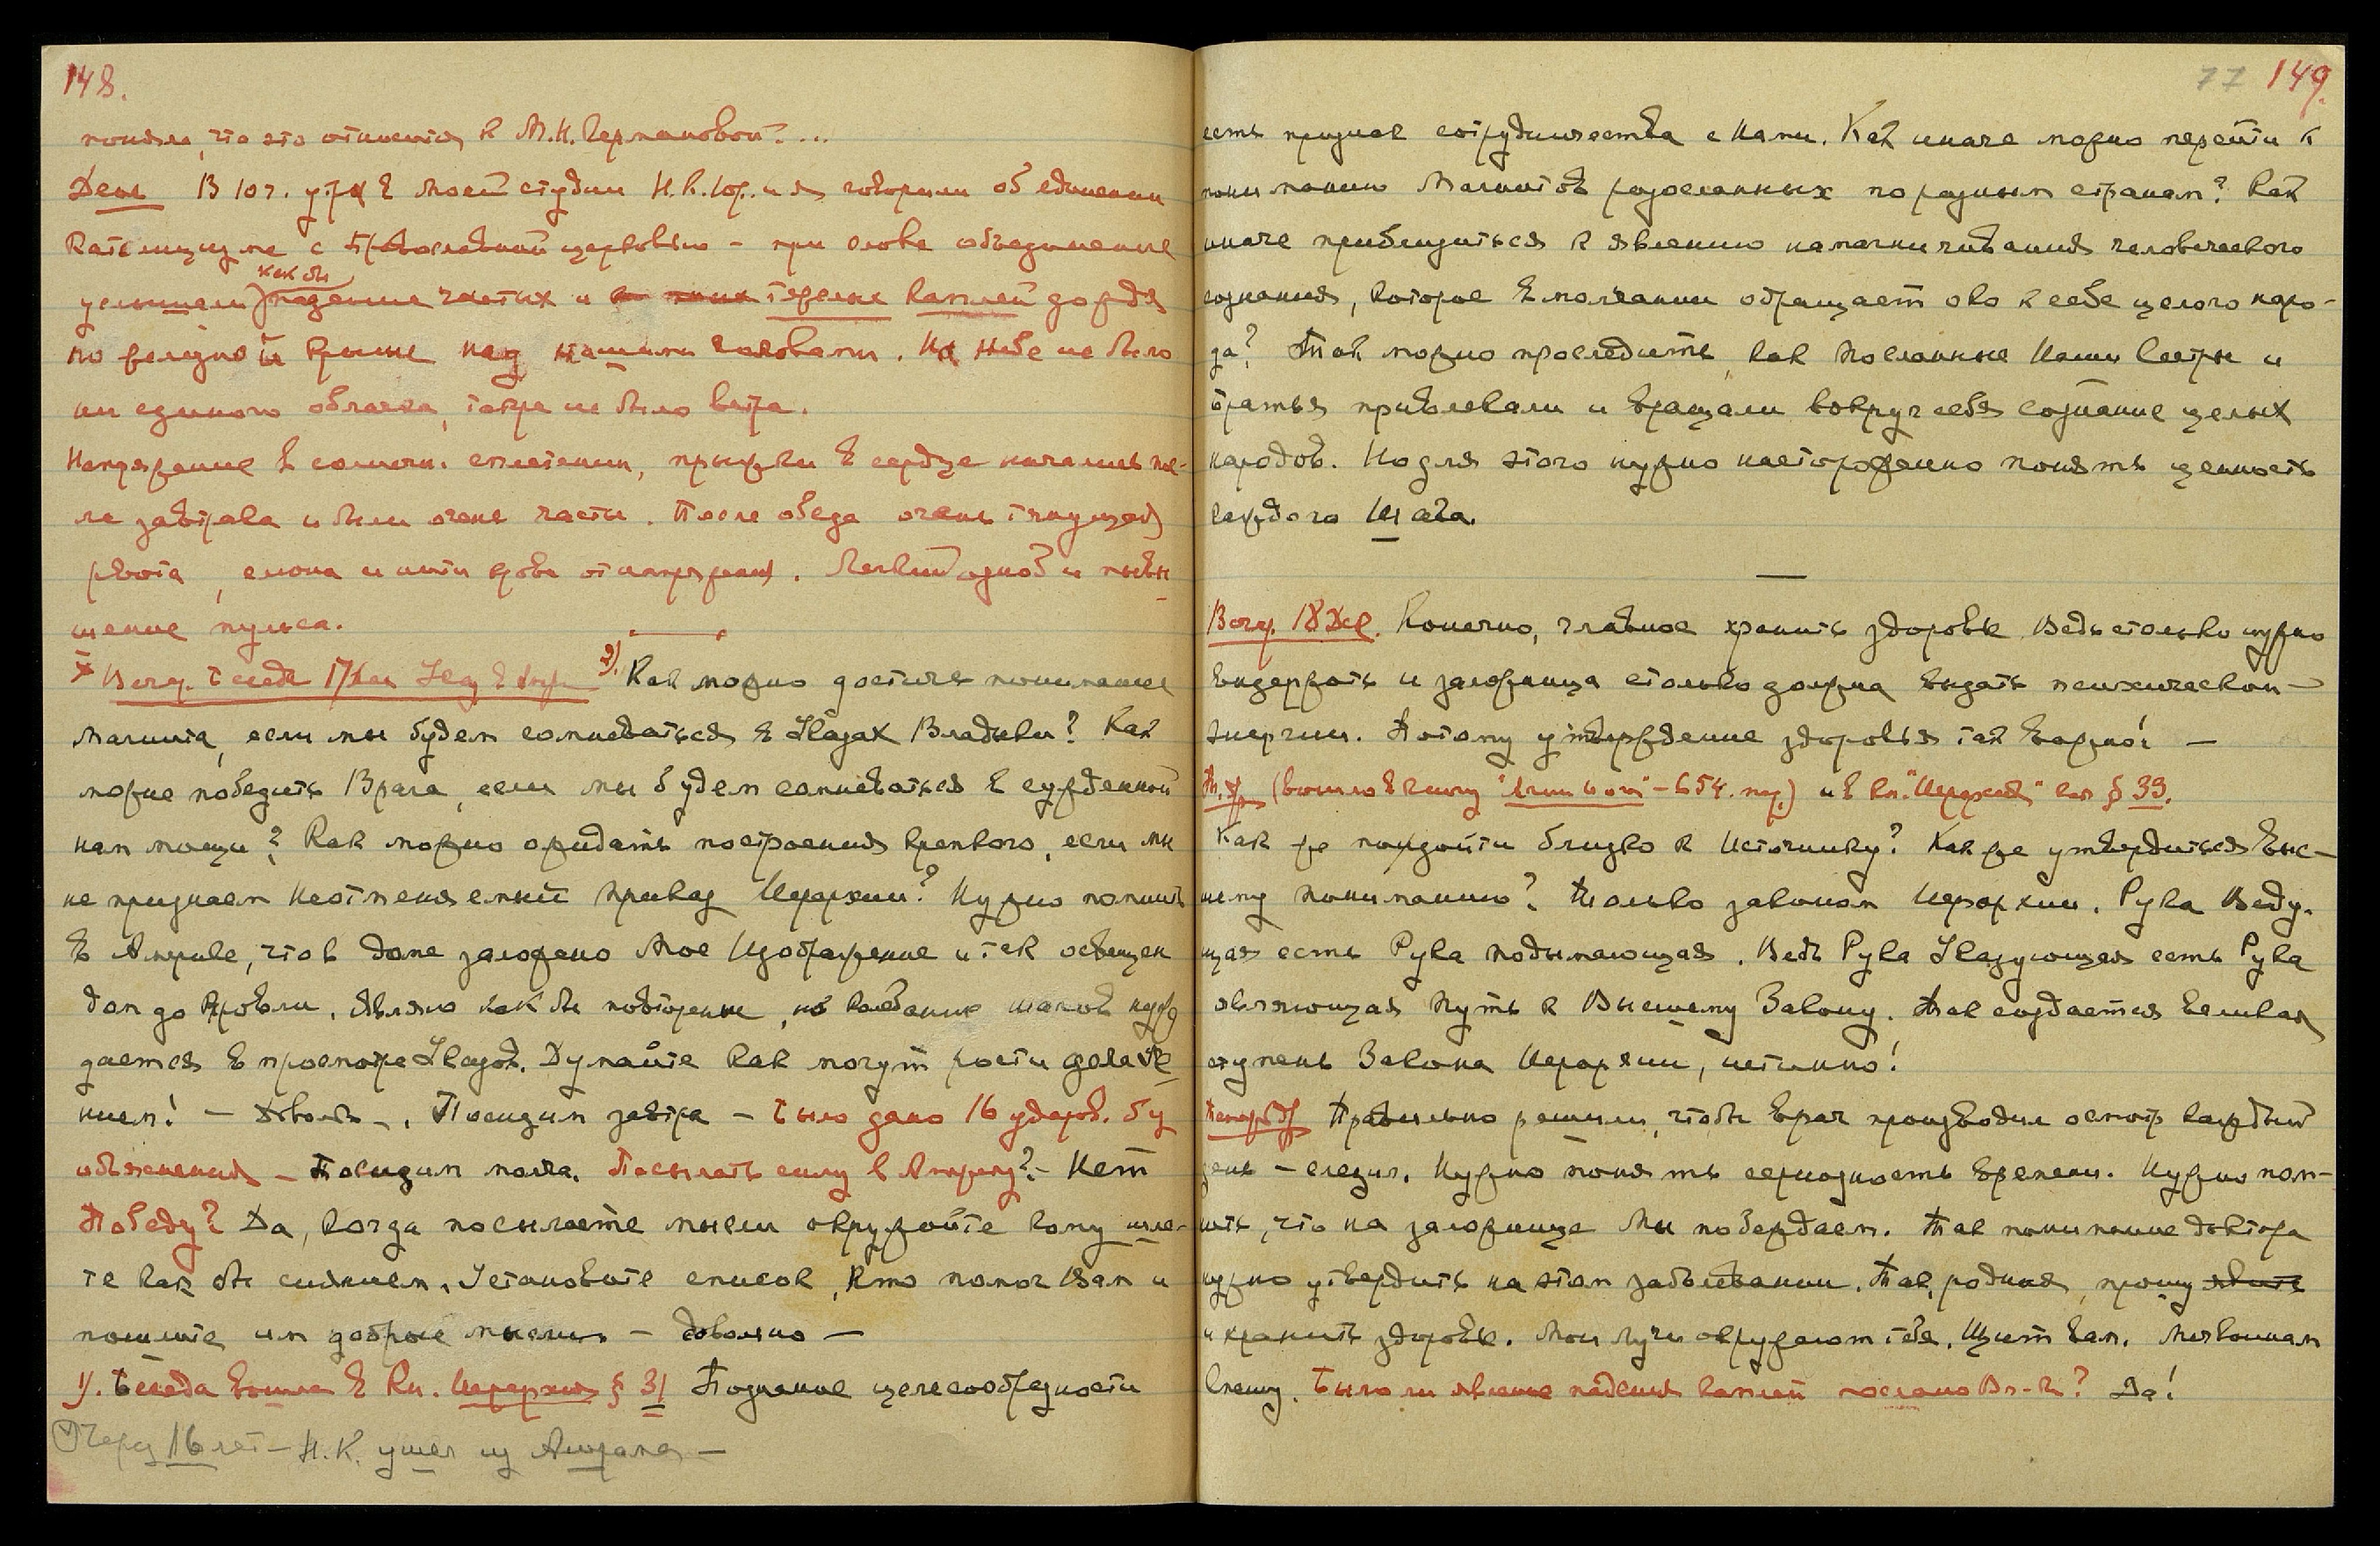 148.
поняли, что это относится к М.Н. Германовой?...
День В 10 ч. утра в моей студии Н.К. Юр. и я говорили об единении
католицизма с православной церковью – при слове объединение
как бы
услышали падение частых и тяжелых капель дождя
по железной крыше над нашими головами. На небе не было
ни единого облачка, также не было ветра.
Напряжение в солнечн. сплетении, прыжки в сердце начались пос-
ле завтрака и были очень часты. После обеда очень тянущая
рвота, слюна и нити крови от напряжения. Легкий озноб и повы
шение пульса.
Веч. Беседа 17 Дек 1) Как можно достичь понимания
Магнита, если мы будем сомневаться в Указах Владыки? Как
можно победить Врага, если мы будем сомневаться в сужденной
нам мощи? Как можно ожидать построения крепкого, если мы
не признаем неотменяемый приказ Иерархии? Нужно помнить
в Америке, что в доме заложено Мое Изображение и так освящен
дом до кровли. Являю как бы повторение, но колебание шагов
дается в просмотре Указов. Думайте как могут рости деля
нием! – Довольно –. Посидим завтра – было дано 16 ударов. Бу
объяснения – Посидим молча. Посылать силу в Америку? – Нет
Победу? Да, когда посылаете мысли окружайте кому шле-
те как бы сиянием. Установите список, кто помог Вам и
пошлите им добрые мысли – довольно –
1). Беседа вошла в Кн. Иерархия § 31 Познание целесообразности
Через 16 лет – Н.К. ушел из Ашрама –
77 149.
есть признак сотрудничества с Нами. Как иначе можно перейти к
пониманию Магнитов разосланных по разным странам? Как
иначе приблизиться к явлению намагничивания человеческого
сознания, которое в молчании обращает око к себе целого наро-
да? Так можно проследить, как посланные Наши Сестры и
братья привлекали и вращали вокруг себя сознание целых
народов. Но для этого нужно настороженно понять ценность
каждого Шага.
—
Вечер. 18 Дек. Конечно, главное хранить здоровье. Ведь столько нужно
выдержать и заложница столько должна выдать психической
энергии. Потому утверждение здоровья так важно! –
(вошло в книгу "Агни Йоги" – 654. пар.) и в кн. "Иерархия" как § 33.
Как же подойти близко к Источнику? Как же утвердиться выс-
шему пониманию? Только законом Иерархии. Рука Веду-
щая есть Рука Подымающая. Ведь Рука Указующая есть Рука
являющая путь к Высшему Закону. Так создается великая
ступень Закона Иерархии, истинно!
Правильно решили, чтобы врач производил осмотр каждый
день – следил. Нужно понять серьозность времени. Нужно пом-
нить, что на заложнице Мы побеждаем. Так понимание доктора
нужно утвердить на этом заболевании. Так, родная, прошу явить
и хранить здоровье. Мои Лучи окружают тебя. Щит вам.
Было ли явление падения капель послано Вл-ой? Да!